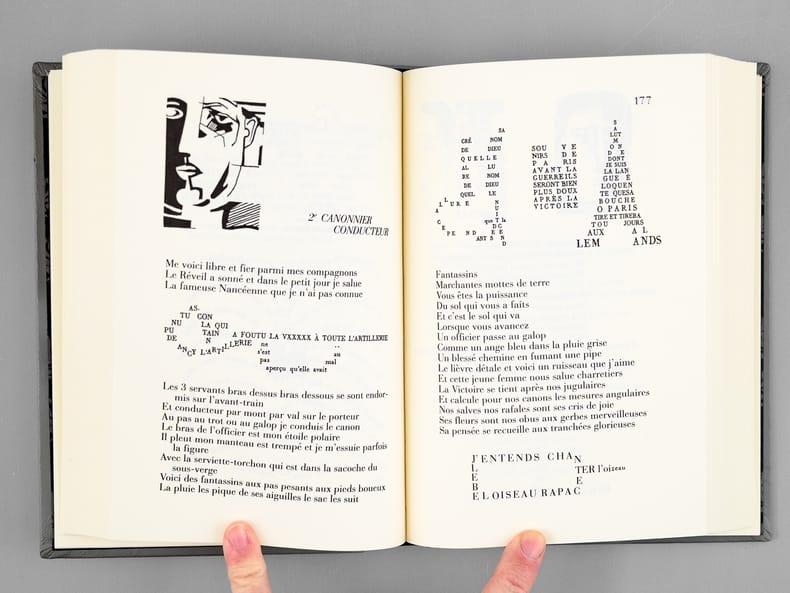 2e CANONNIER
CONDUCTEUR
Me voici libre et fier parmi mes compagnons
Le Réveil a sonné et dans le petit jour je salue
La fameuse Nancéenne que je n'ai pas connue
AS-
TU CON
NU LA QUI
PU TAIN A FOUTU LA VXXXXX À TOUTE L'ARTILLERIE
DE N
ANCY L'ARTILLERIE ne
s'est au
pas mal
aperçu qu'elle avait
Les 3 servants bras dessus bras dessous se sont endor-
mis sur l'avant-train
Et conducteur par mont par val sur le porteur
Au pas au trot ou au galop je conduis le canon
Le bras de l'officier est mon étoile polaire
Il pleut mon manteau est trempé et je m'essuie parfois
la figure
Avec la serviette-torchon qui est dans la sacoche du
sous-verge
Voici des fantassins aux pas pesants aux pieds boueux
La pluie les pique de ses aiguilles le sac les suit
177
SA
CRÉ NOM
DE DIEU
QUELLE
AL LU
RE NOM
DE DIEU
QUEL LE
ALLURE
CE
PEND
ANT
que
SOU VE
NIRS DE
PARIS
AVANT LA
GUERRE ILS
SERONT BIEN
PLUS DOUX
APRÈS LA
VICTOIRE
S
A
LUT
M
O N
D E
DONT
JE SUIS
LA LAN
GUE É
LOQUEN
TE QUE SA
BOUCHE
O PARIS
TIRE ET TIRERA
TOU JOURS
AUX AL
LEM ANDS
Fantassins
Marchantes mottes de terre
Vous êtes la puissance
Du sol qui vous a faits
Et c'est le sol qui va
Lorsque vous avancez
Un officier passe au galop
Comme un ange bleu dans la pluie grise
Un blessé chemine en fumant une pipe
Le lièvre détale et voici un ruisseau que j'aime
Et cette jeune femme nous salue charretiers
La Victoire se tient après nos jugulaires
Et calcule pour nos canons les mesures angulaires
Nos salves nos rafales sont ses cris de joie
Ses fleurs sont nos obus aux gerbes merveilleuses
Sa pensée se recueille aux tranchées glorieuses
J'ENTENDS CHAN
TER l'oiseau
LE
BEL OISEAU RAPACE